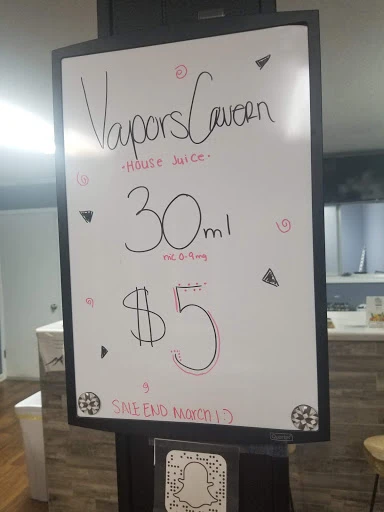 Vapors Cavern
• House Juice •
30ml
nic 0-9mg
$5
SALE END March 1 :)